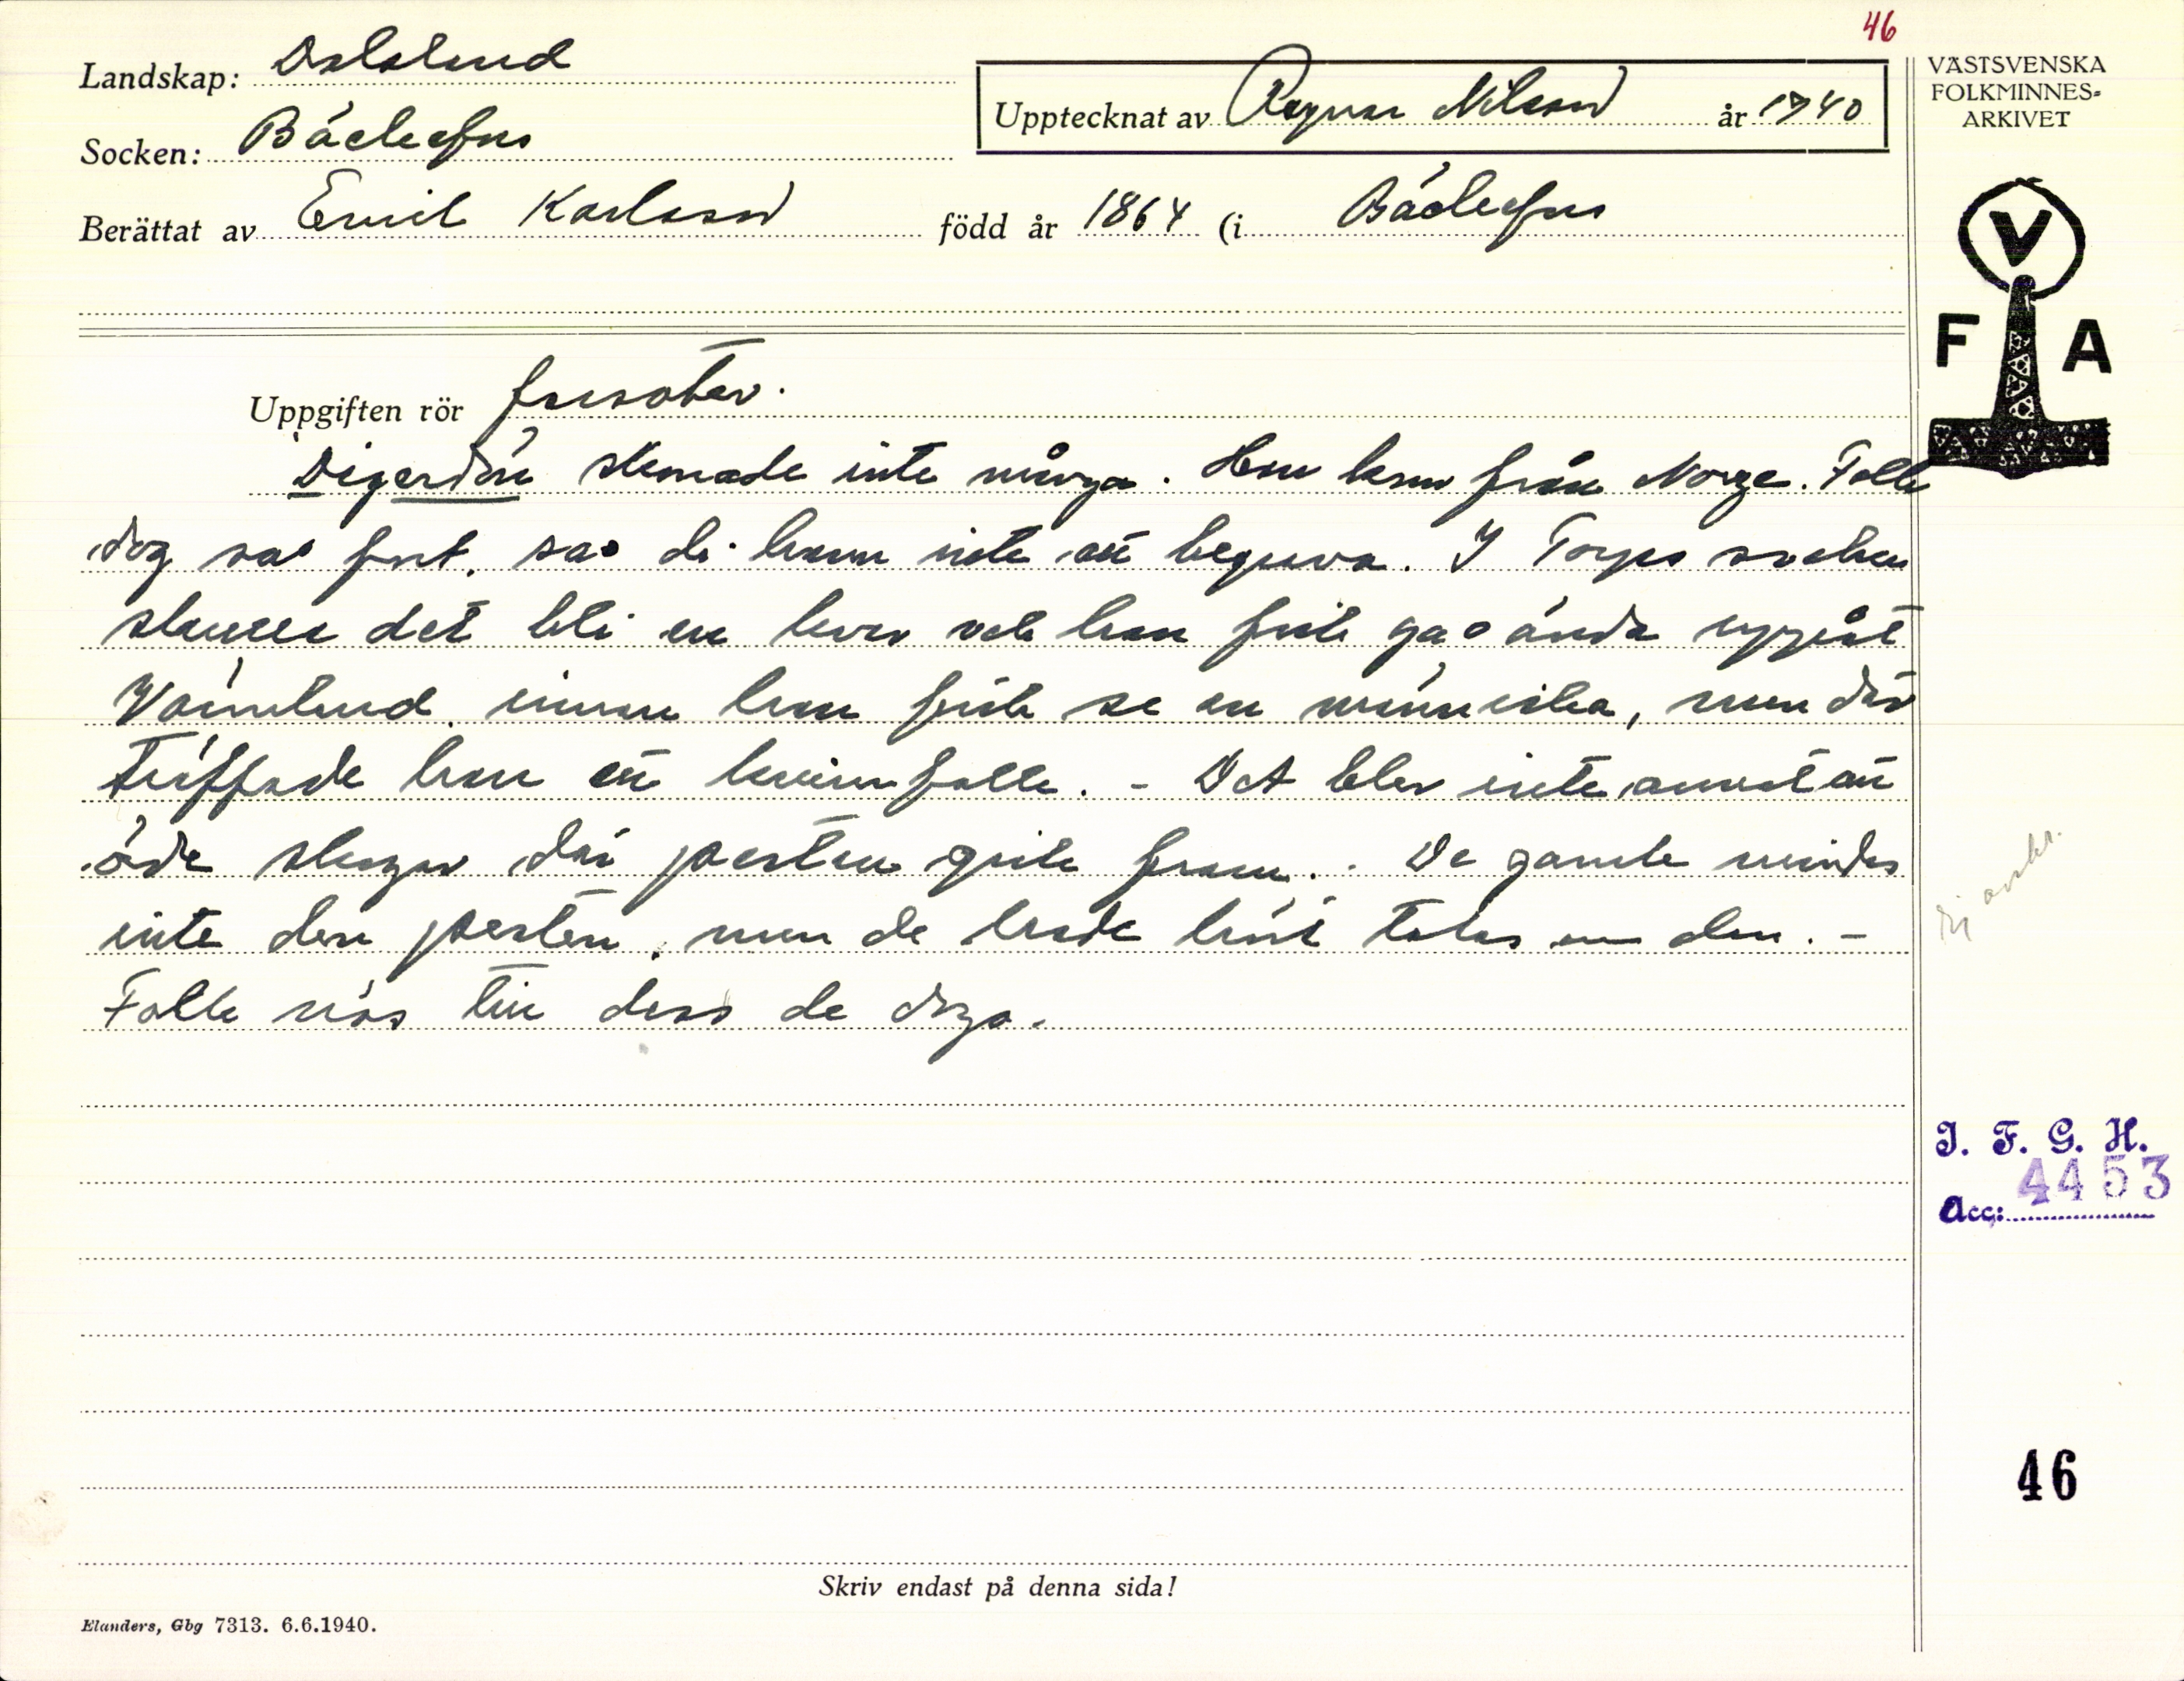 46
Landskap: Dalsland
Socken: Bäckefors
Upptecknat av Ragnar Nilsson år 1940
Berättat av Emil Karlsson född år 1864 (i Bäckefors
VÄSTSVENSKA
FOLKMINNES-
ARKIVET
V
F A
Uppgiften rör farsoter.
Digerdön skonade inte många. Hon kom från Norge. Folk
dog så fort, så di hann inte att begrava. I Torps socken
skulle det bli en karl och han fick gå ända uppåt
Värmland, innan han fick se en människa, men där
träffade han ett kvinnfolk. - Det blev inte annat än
öde skogar där pesten gick fram. De gamle mindes
inte den pesten, men de hade hört talas om den. -
Folk nös till dess de dogo.
Ej avskr.
I. F. G. H.
Acc: 4453
46
Skriv endast på denna sida!
Elanders, Gbg 7313. 6.6.1940.